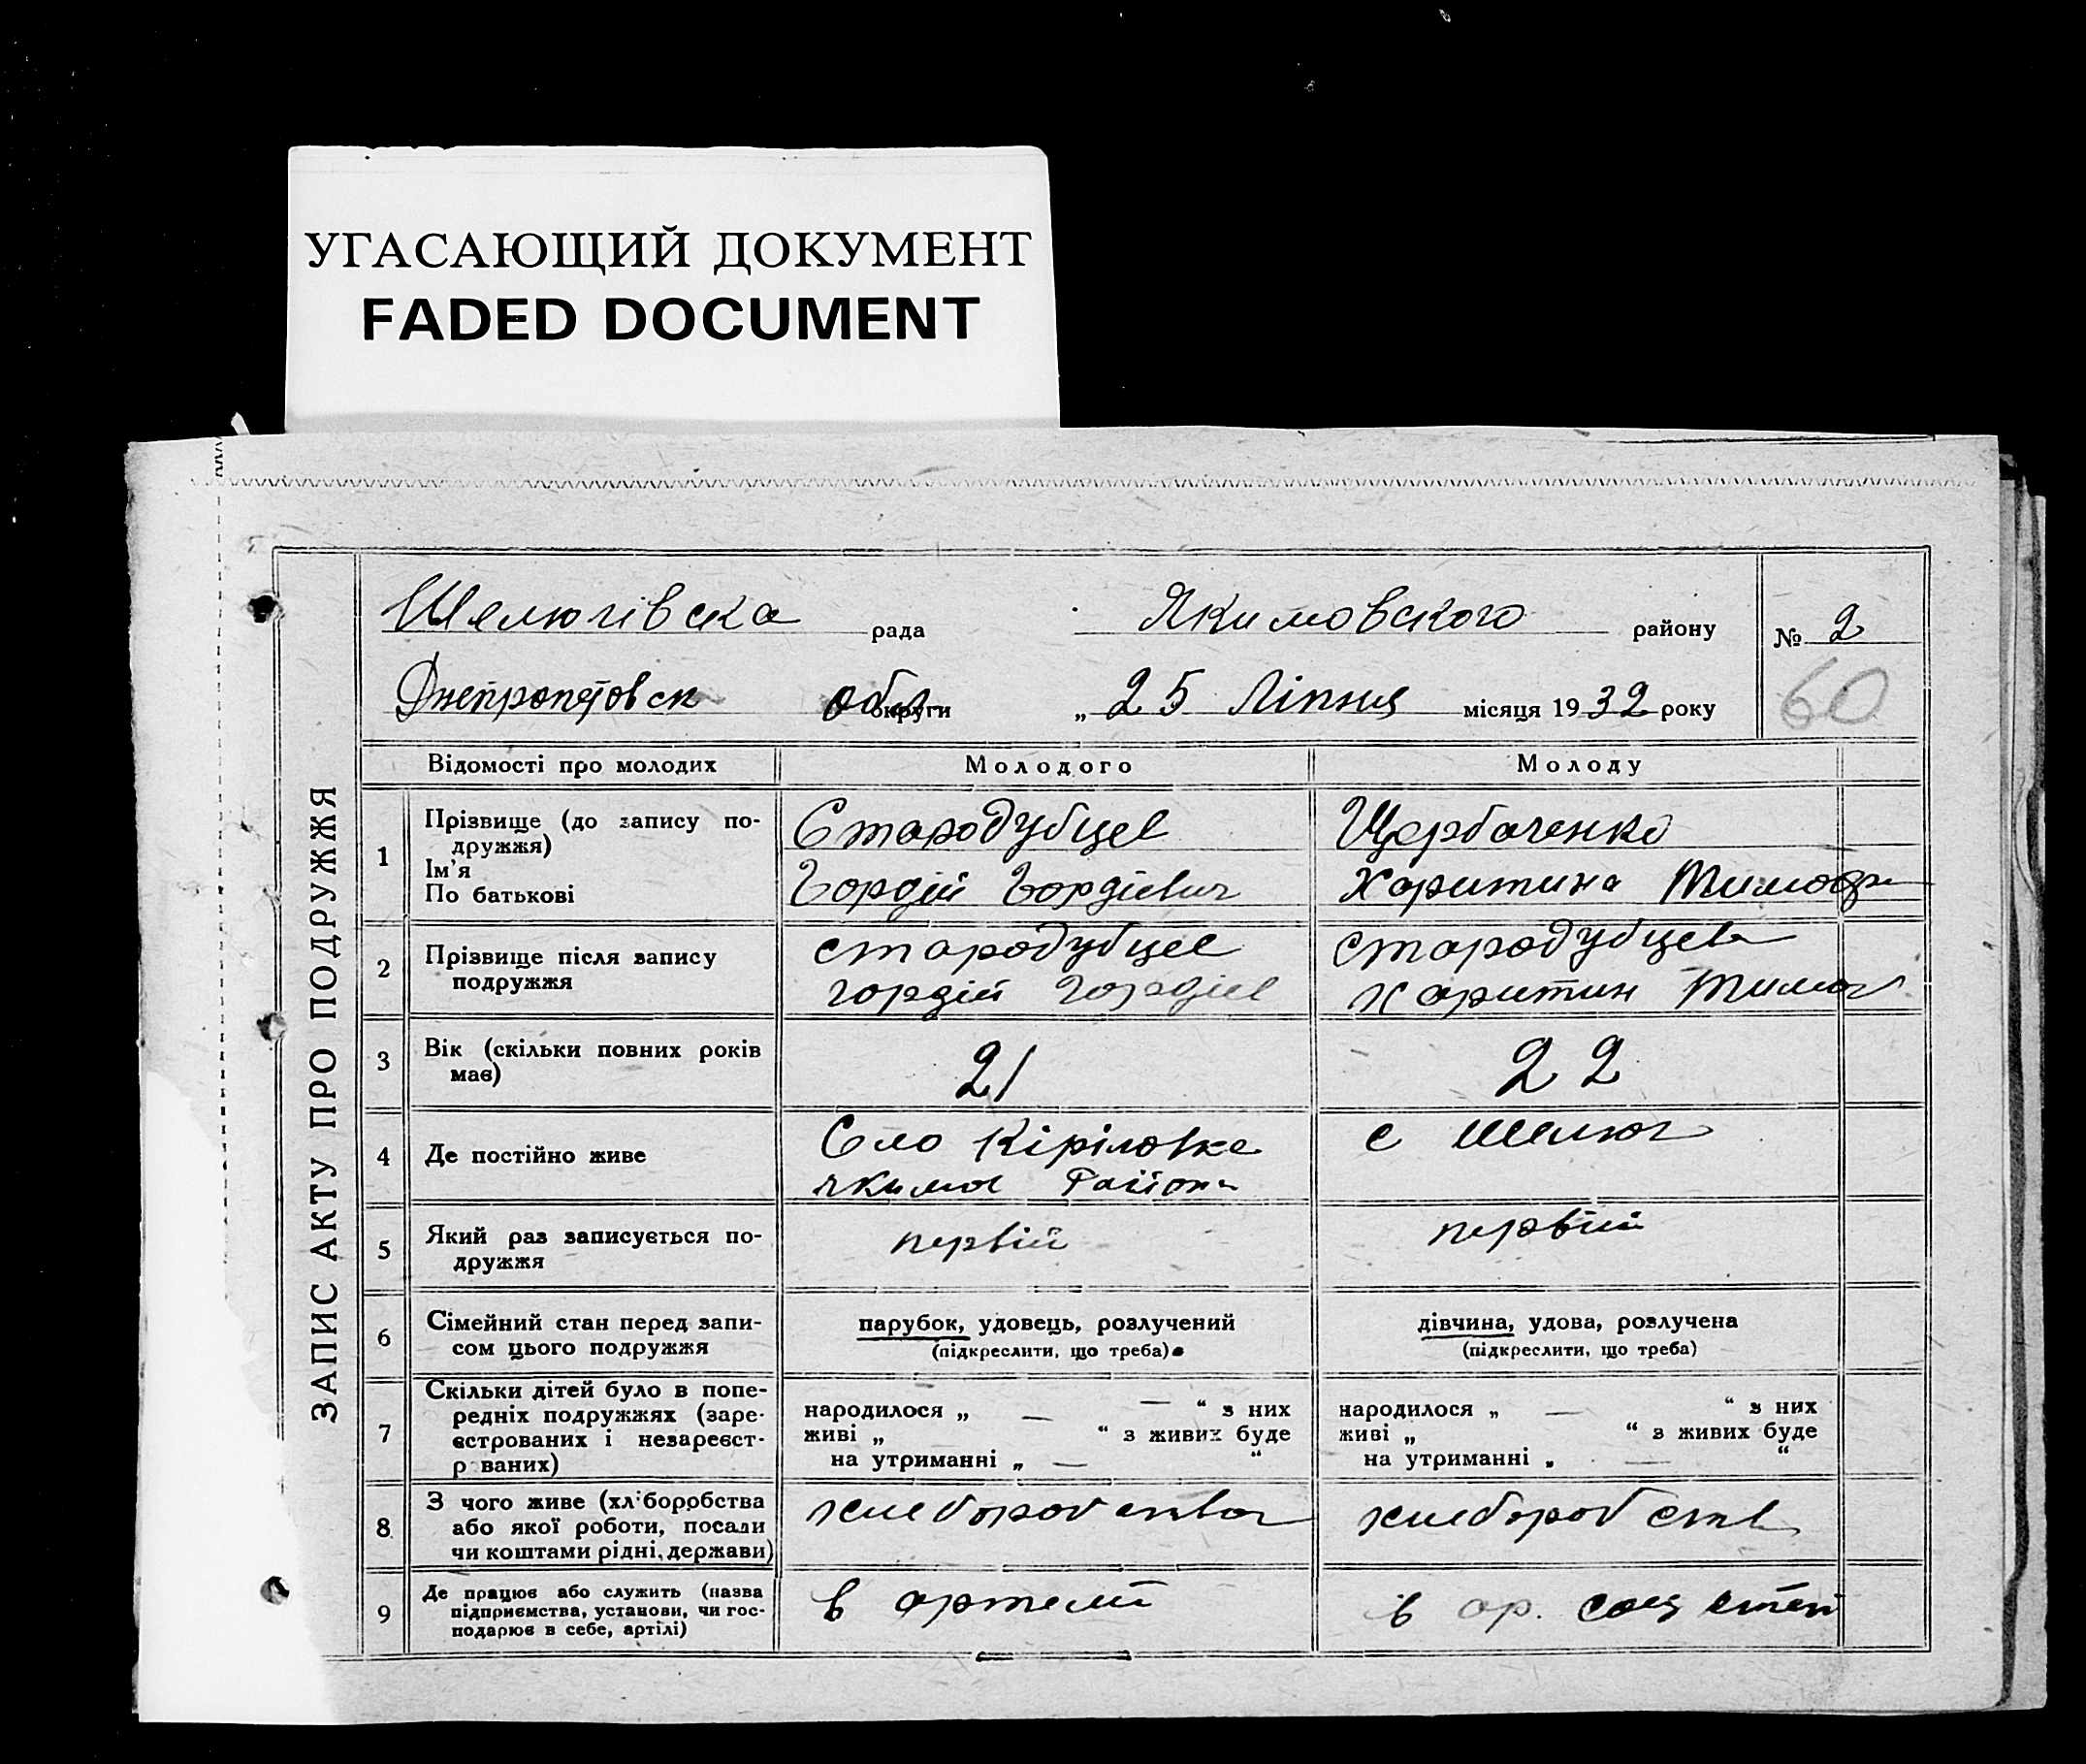 УГАСАЮЩИЙ ДОКУМЕНТ
FADED DOCUMENT
ЗАПИС АКТУ ПРО ПОДРУЖЖЯ
Шелюгівска рада Якимовского району № 2
Днепропетовск обл. округи „ 25 Ліпня місяця 1932 року
60
Відомості про молодих Молодого Молоду
1 Прізвище (до запису по-
дружжя)
Ім'я
По батькові
Стародубцев
Гордій Гордіевич
Щербаченко
Харитина Тимоф
2 Прізвище після запису
подружжя
стародубцев
гордій гордіев
стародубцев
Харитин Тимо
3 Вік (скільки повних років
має)
21
22
4 Де постійно живе
Сло Кіріловка
якимов Району
с Шелюг
5 Який раз записується по-
дружжя
первій
первий
6 Сімейний стан перед запи-
сом цього подружжя
парубок, удовець, розлучений
(підкреслити, що треба)
дівчина, удова, розлучена
(підкреслити, що треба)
7 Скільки дітей було в попе-
редніх подружжях (заре-
єстрованих і незареєст-
р ваних)
народилося „ — — “ з них
живі „ “ з живих буде
на утриманні „ — “
народилося „ — “ з них
живі „ “ з живих буде
на утриманні „ — “
8 З чого живе (хліборобства
або якої роботи, посади
чи коштами рідні, держави)
хлеборобства
хлебороб ств
9 Де працює або служить (назва
підприємства, установи, чи гос-
подарює в себе, артілі)
в артели
в ар. соц степ